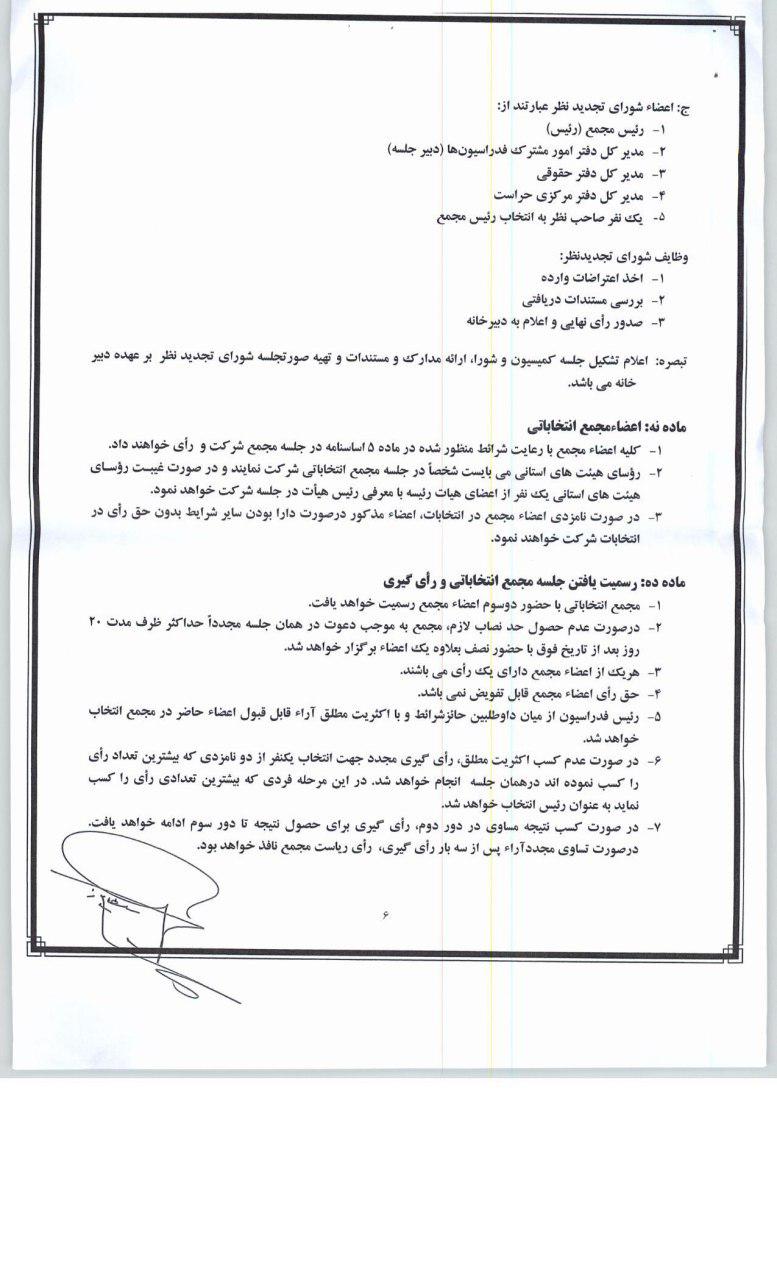 ج: اعضاء شورای تجدید نظر عبارتند از:
۱- رئیس مجمع (رئیس)
۲- مدیر کل دفتر امور مشترک فدراسیون‌ها (دبیر جلسه)
۳- مدیر کل دفتر حقوقی
۴- مدیر کل دفتر مرکزی حراست
۵- یک نفر صاحب نظر به انتخاب رئیس مجمع
وظایف شورای تجدیدنظر:
۱- اخذ اعتراضات وارده
۲- بررسی مستندات دریافتی
۳- صدور رأی نهایی و اعلام به دبیرخانه
تبصره: اعلام تشکیل جلسه کمیسیون و شورا، ارائه مدارک و مستندات و تهیه صورتجلسه شورای تجدید نظر بر عهده دبیر
خانه می باشد.
ماده نه: اعضاءمجمع انتخاباتی
۱- کلیه اعضاء مجمع با رعایت شرائط منظور شده در ماده ۵ اساسنامه در جلسه مجمع شرکت و رأی خواهند داد.
۲- رؤسای هیئت های استانی می بایست شخصاً در جلسه مجمع انتخاباتی شرکت نمایند و در صورت غیبت رؤسای
هیئت های استانی یک نفر از اعضای هیات رئیسه با معرفی رئیس هیأت در جلسه شرکت خواهد نمود.
۳- در صورت نامزدی اعضاء مجمع در انتخابات، اعضاء مذکور درصورت دارا بودن سایر شرایط بدون حق رأی در
انتخابات شرکت خواهند نمود.
ماده ده: رسمیت یافتن جلسه مجمع انتخاباتی و رأی گیری
۱- مجمع انتخاباتی با حضور دوسوم اعضاء مجمع رسمیت خواهد یافت.
۲- درصورت عدم حصول حد نصاب لازم، مجمع به موجب دعوت در همان جلسه مجدداً حداکثر ظرف مدت ۲۰
روز بعد از تاریخ فوق با حضور نصف بعلاوه یک اعضاء برگزار خواهد شد.
۳- هریک از اعضاء مجمع دارای یک رأی می باشند.
۴- حق رأی اعضاء مجمع قابل تفویض نمی باشد.
۵- رئیس فدراسیون از میان داوطلبین حائزشرائط و با اکثریت مطلق آراء قابل قبول اعضاء حاضر در مجمع انتخاب
خواهد شد.
۶- در صورت عدم کسب اکثریت مطلق، رأی گیری مجدد جهت انتخاب یکنفر از دو نامزدی که بیشترین تعداد رأی
را کسب نموده اند درهمان جلسه انجام خواهد شد. در این مرحله فردی که بیشترین تعدادی رأی را کسب
نماید به عنوان رئیس انتخاب خواهد شد.
۷- در صورت کسب نتیجه مساوی در دور دوم، رأی گیری برای حصول نتیجه تا دور سوم ادامه خواهد یافت.
درصورت تساوی مجددآراء پس از سه بار رأی گیری، رأی ریاست مجمع نافذ خواهد بود.
۶